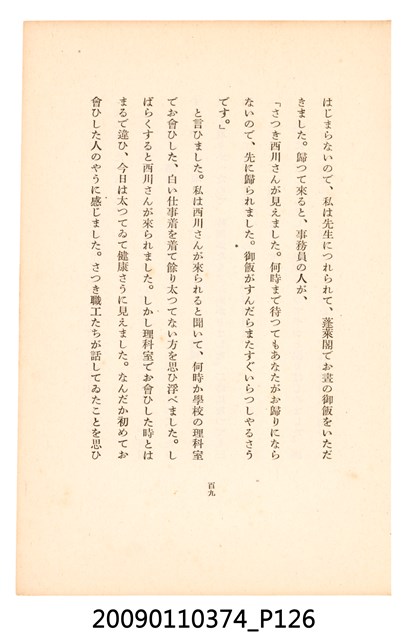 はじまらないので、私は先生につれられて、蓬萊閣でお晝の御飯をいただ
きました。歸つて來ると、事務員の人が、
「さつき西川さんが見えました。何時まで待つてもあなたがお歸りになら
ないので、先に歸られました。御飯がすんだらまたすぐいらつしやるさう
です。」
と言ひました。私は西川さんが來られると聞いて、何時か學校の理科室
でお會ひした、白い仕事着を着て餘り太つてない方を思ひ浮べました。し
ばらくすると西川さんが來られました。しかし理科室でお會ひした時とは
まるで違ひ、今日は太つてゐて健康さうに見えました。なんだか初めてお
會ひした人のやうに感じました。さつき職工たちが話してゐたことを思ひ
百九
20090110374_P126